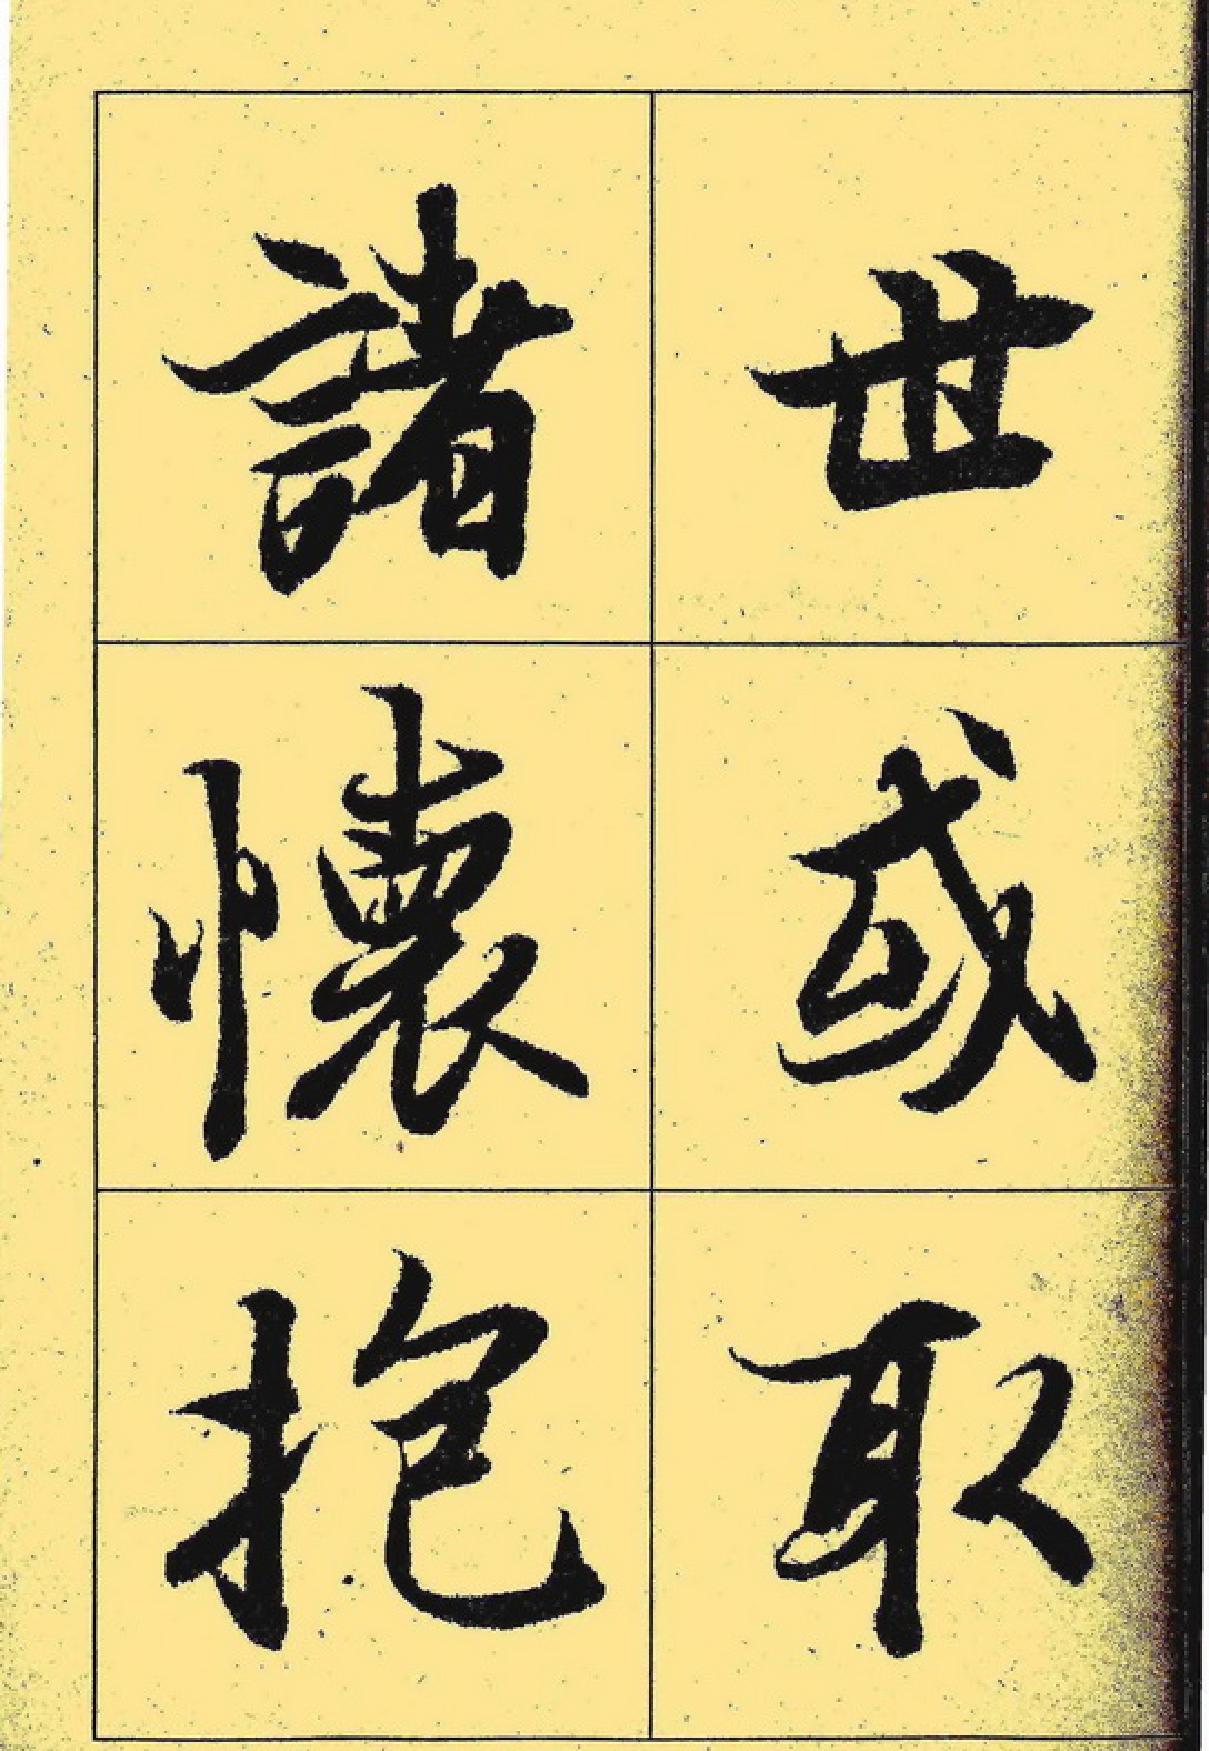 世或取
諸懷抱